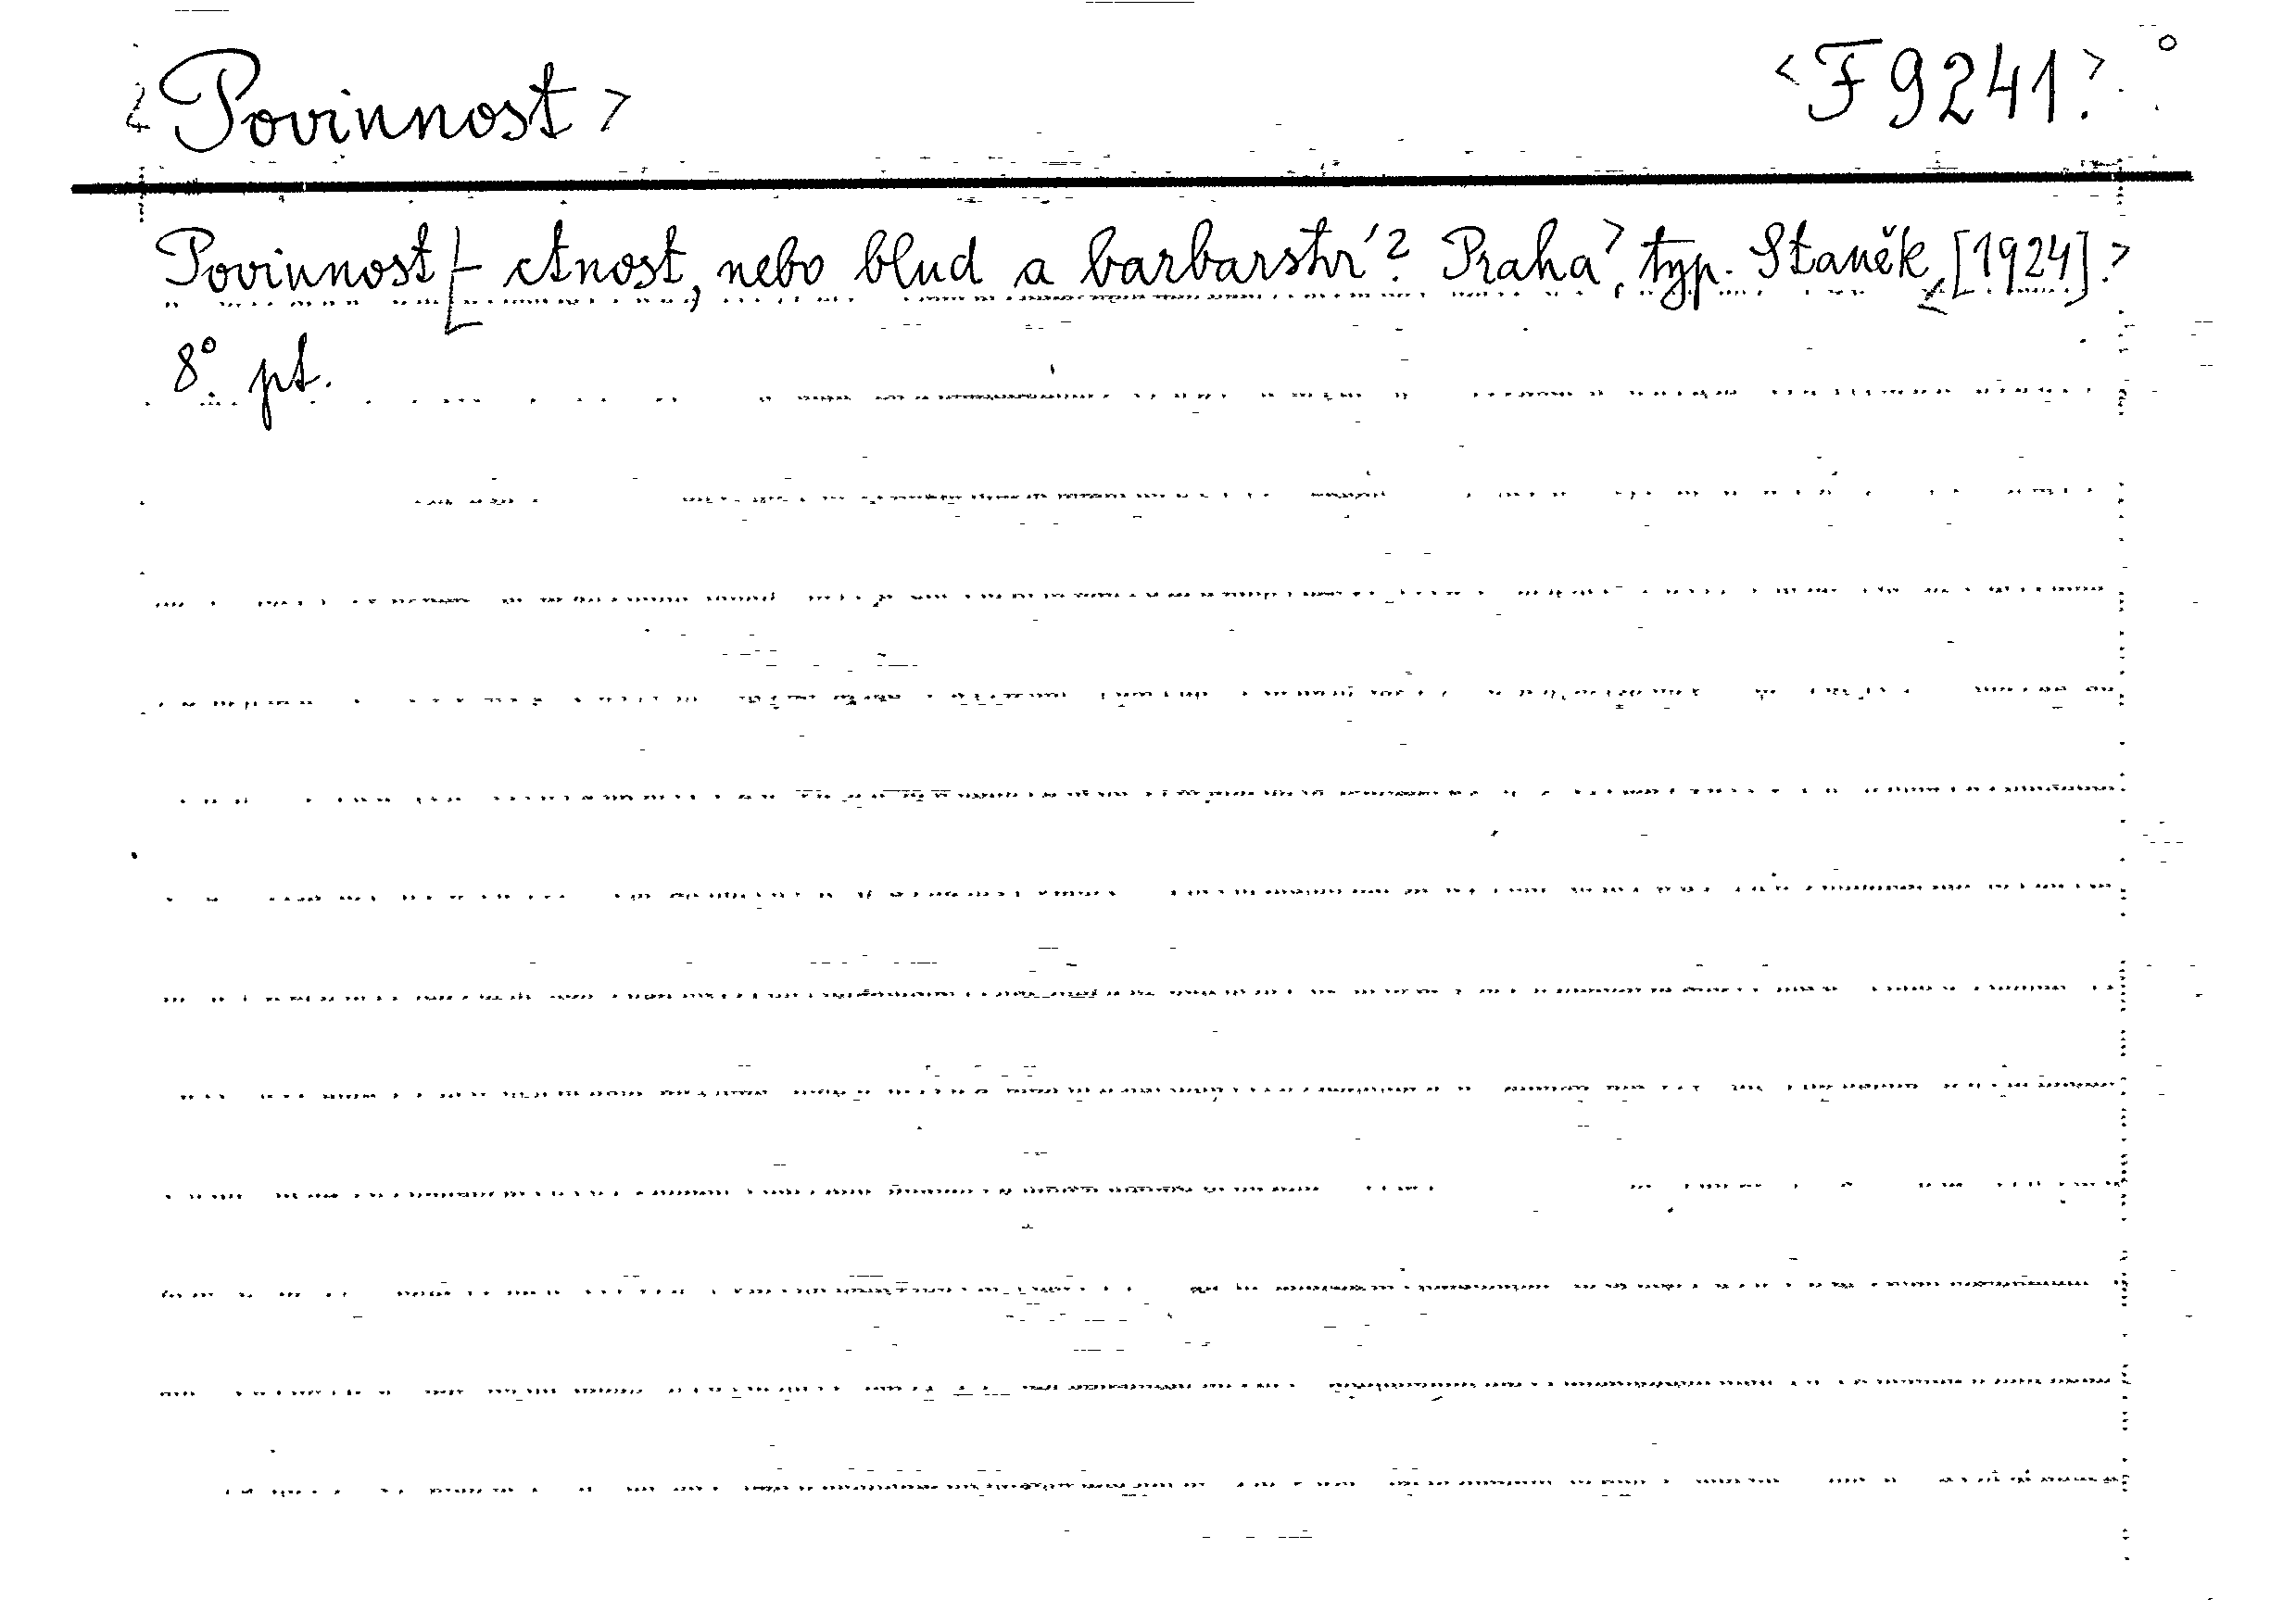 <Povinnost> <F 9241.>
Povinnost - ctnost, nebo blud a barbarství? Praha, typ. Staněk, [1924].
8° pt.